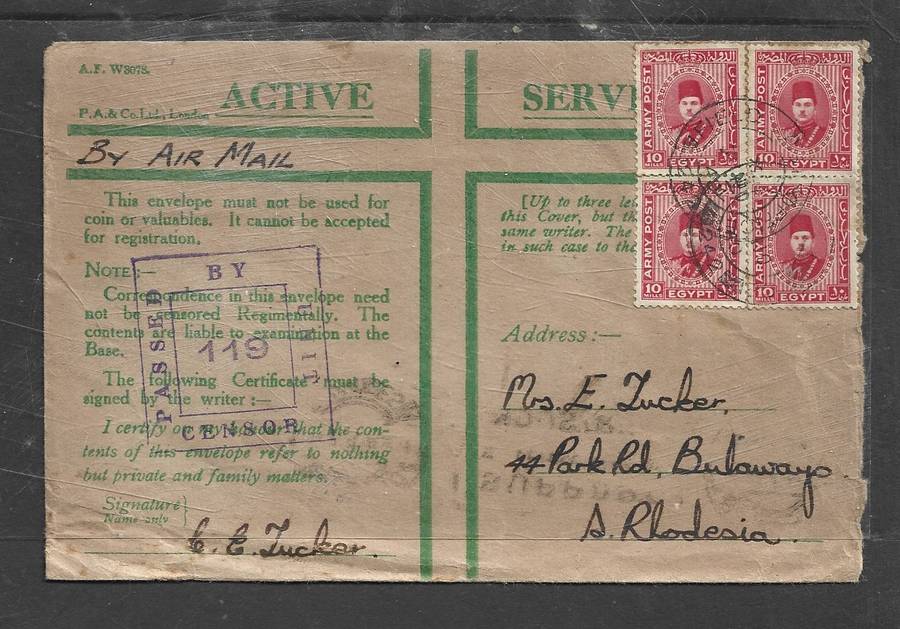 A.F. W3078.
P.A. & Co. Ltd., London
ACTIVE
SERV
By AIR MAIL
This envelope must not be used for
coin or valuables. It cannot be accepted
for registration.
NOTE:—
Correspondence in this envelope need
not be censored Regimentally. The
contents are liable to examination at the
Base.
The following Certificate must be
signed by the writer:—
I certify on my honour that the con-
tents of this envelope refer to nothing
but private and family matters.
Signature
Name only
E. E. Tucker.
PASSED
BY
UNIT
CENSOR
119
[Up to three
this Cover, but
same writer. The
in such case to the
Address:—
Mrs. E. Tucker,
44 Park Rd, Bulawayo.
S. Rhodesia.
ARMY POST
10 MILLS
EGYPT
ARMY POST
10 MILLS
EGYPT
ARMY POST
10 MILLS
EGYPT
ARMY POST
10 MILLS
EGYPT